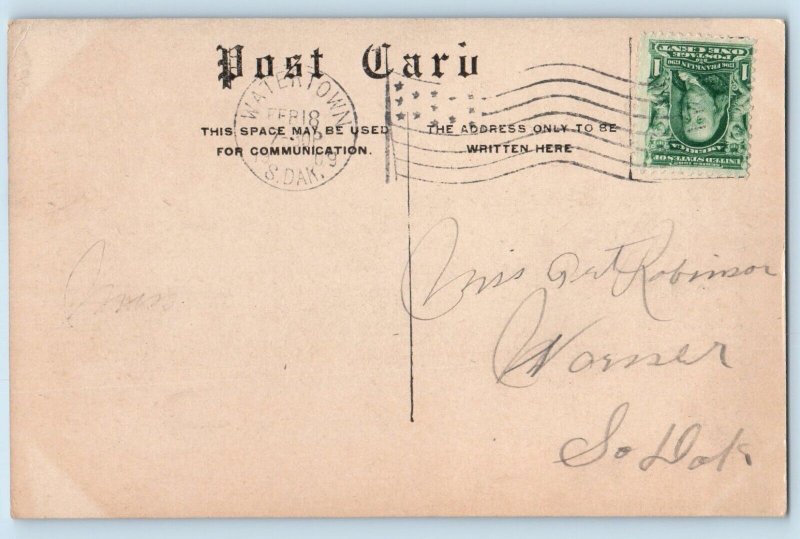 Post Card
WATERTOWN
FEB 18
S. DAK.
THIS SPACE MAY BE USED
FOR COMMUNICATION.
THE ADDRESS ONLY TO BE
WRITTEN HERE
1 POSTAGE 1
ONE CENT
1706 FRANKLIN 1790
AMERICA
SERIES 1902
UNITED STATES OF
Miss Gert Robinson
Warner
So Dak